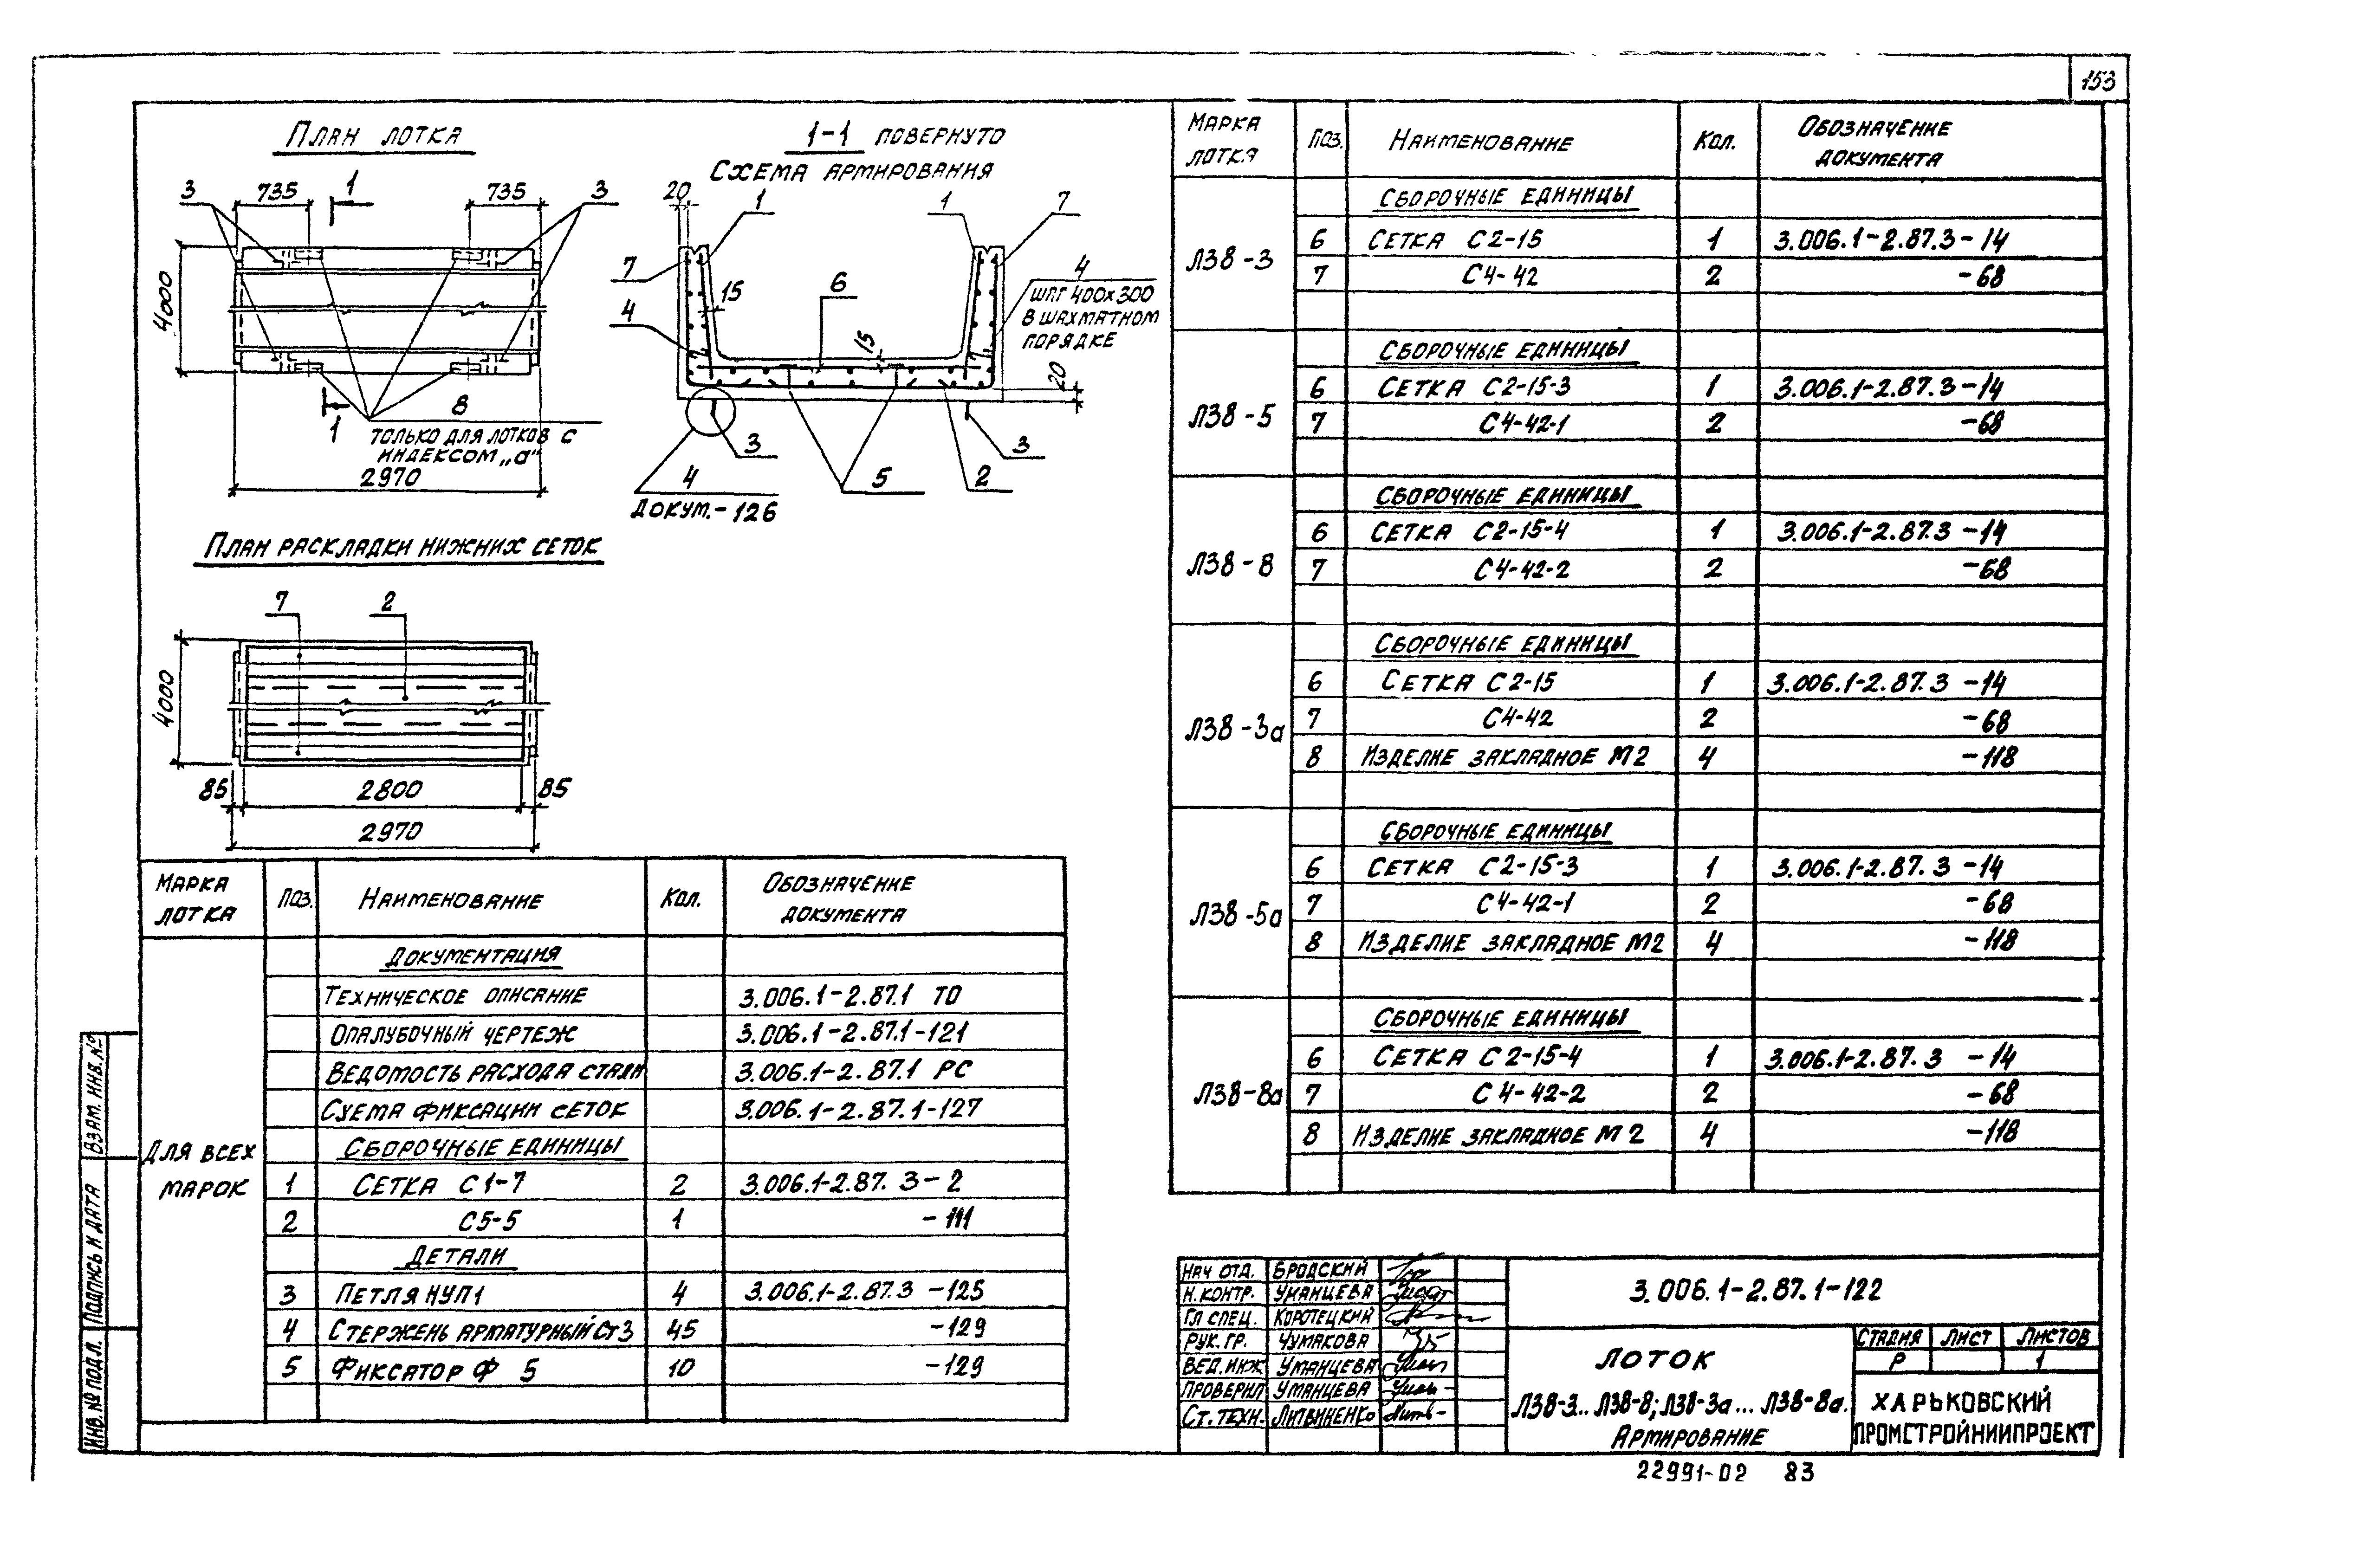 153
План лотка
3
735
1
735
3
4000
1
8
только для лотков с
индексом „а"
2970
1-1 повернуто
Схема армирования
20
1
1
7
7
15
6
4
шаг 400х300
в шахматном
порядке
4
15
20
3
3
4
5
2
Докум.-126
План раскладки нижних сеток
7
2
4000
85
2800
85
2970
Марка лотка Поз. Наименование Кол. Обозначение документа
Для всех марок
Документация
Техническое описание 3.006.1-2.87.1 ТО
Опалубочный чертеж 3.006.1-2.87.1-121
Ведомость расхода стали 3.006.1-2.87.1 РС
Схема фиксации сеток 3.006.1-2.87.1-127
Сборочные единицы
1 Сетка С1-7 2 3.006.1-2.87.3-2
2 С5-5 1 -111
Детали
3 Петля НУП1 4 3.006.1-2.87.3 -125
4 Стержень арматурный Ст3 45 -129
5 Фиксатор Ф 5 10 -129
Марка лотка Поз. Наименование Кол. Обозначение документа
Л38-3
Сборочные единицы
6 Сетка С2-15 1 3.006.1-2.87.3-14
7 С4-42 2 -68
Л38-5
Сборочные единицы
6 Сетка С2-15-3 1 3.006.1-2.87.3-14
7 С4-42-1 2 -68
Л38-8
Сборочные единицы
6 Сетка С2-15-4 1 3.006.1-2.87.3-14
7 С4-42-2 2 -68
Л38-3а
Сборочные единицы
6 Сетка С2-15 1 3.006.1-2.87.3-14
7 С4-42 2 -68
8 Изделие закладное М2 4 -118
Л38-5а
Сборочные единицы
6 Сетка С2-15-3 1 3.006.1-2.87.3-14
7 С4-42-1 2 -68
8 Изделие закладное М2 4 -118
Л38-8а
Сборочные единицы
6 Сетка С2-15-4 1 3.006.1-2.87.3 -14
7 С4-42-2 2 -68
8 Изделие закладное М2 4 -118
Нач отд. Бродский
Н.контр. Уманцева
Гл спец. Коротецкий
Рук. гр. Чумакова
Вед. инж Уманцева
Проверил Уманцева
Ст. техн. Литвиненко
3.006.1-2.87.1-122
Лоток
Л38-3... Л38-8; Л38-3а... Л38-8а.
Армирование
Стадия Лист Листов
Р 1
Харьковский
Промстройниипроект
Взам. инв.№
Подпись и дата
Инв. № подл.
22991-02 83